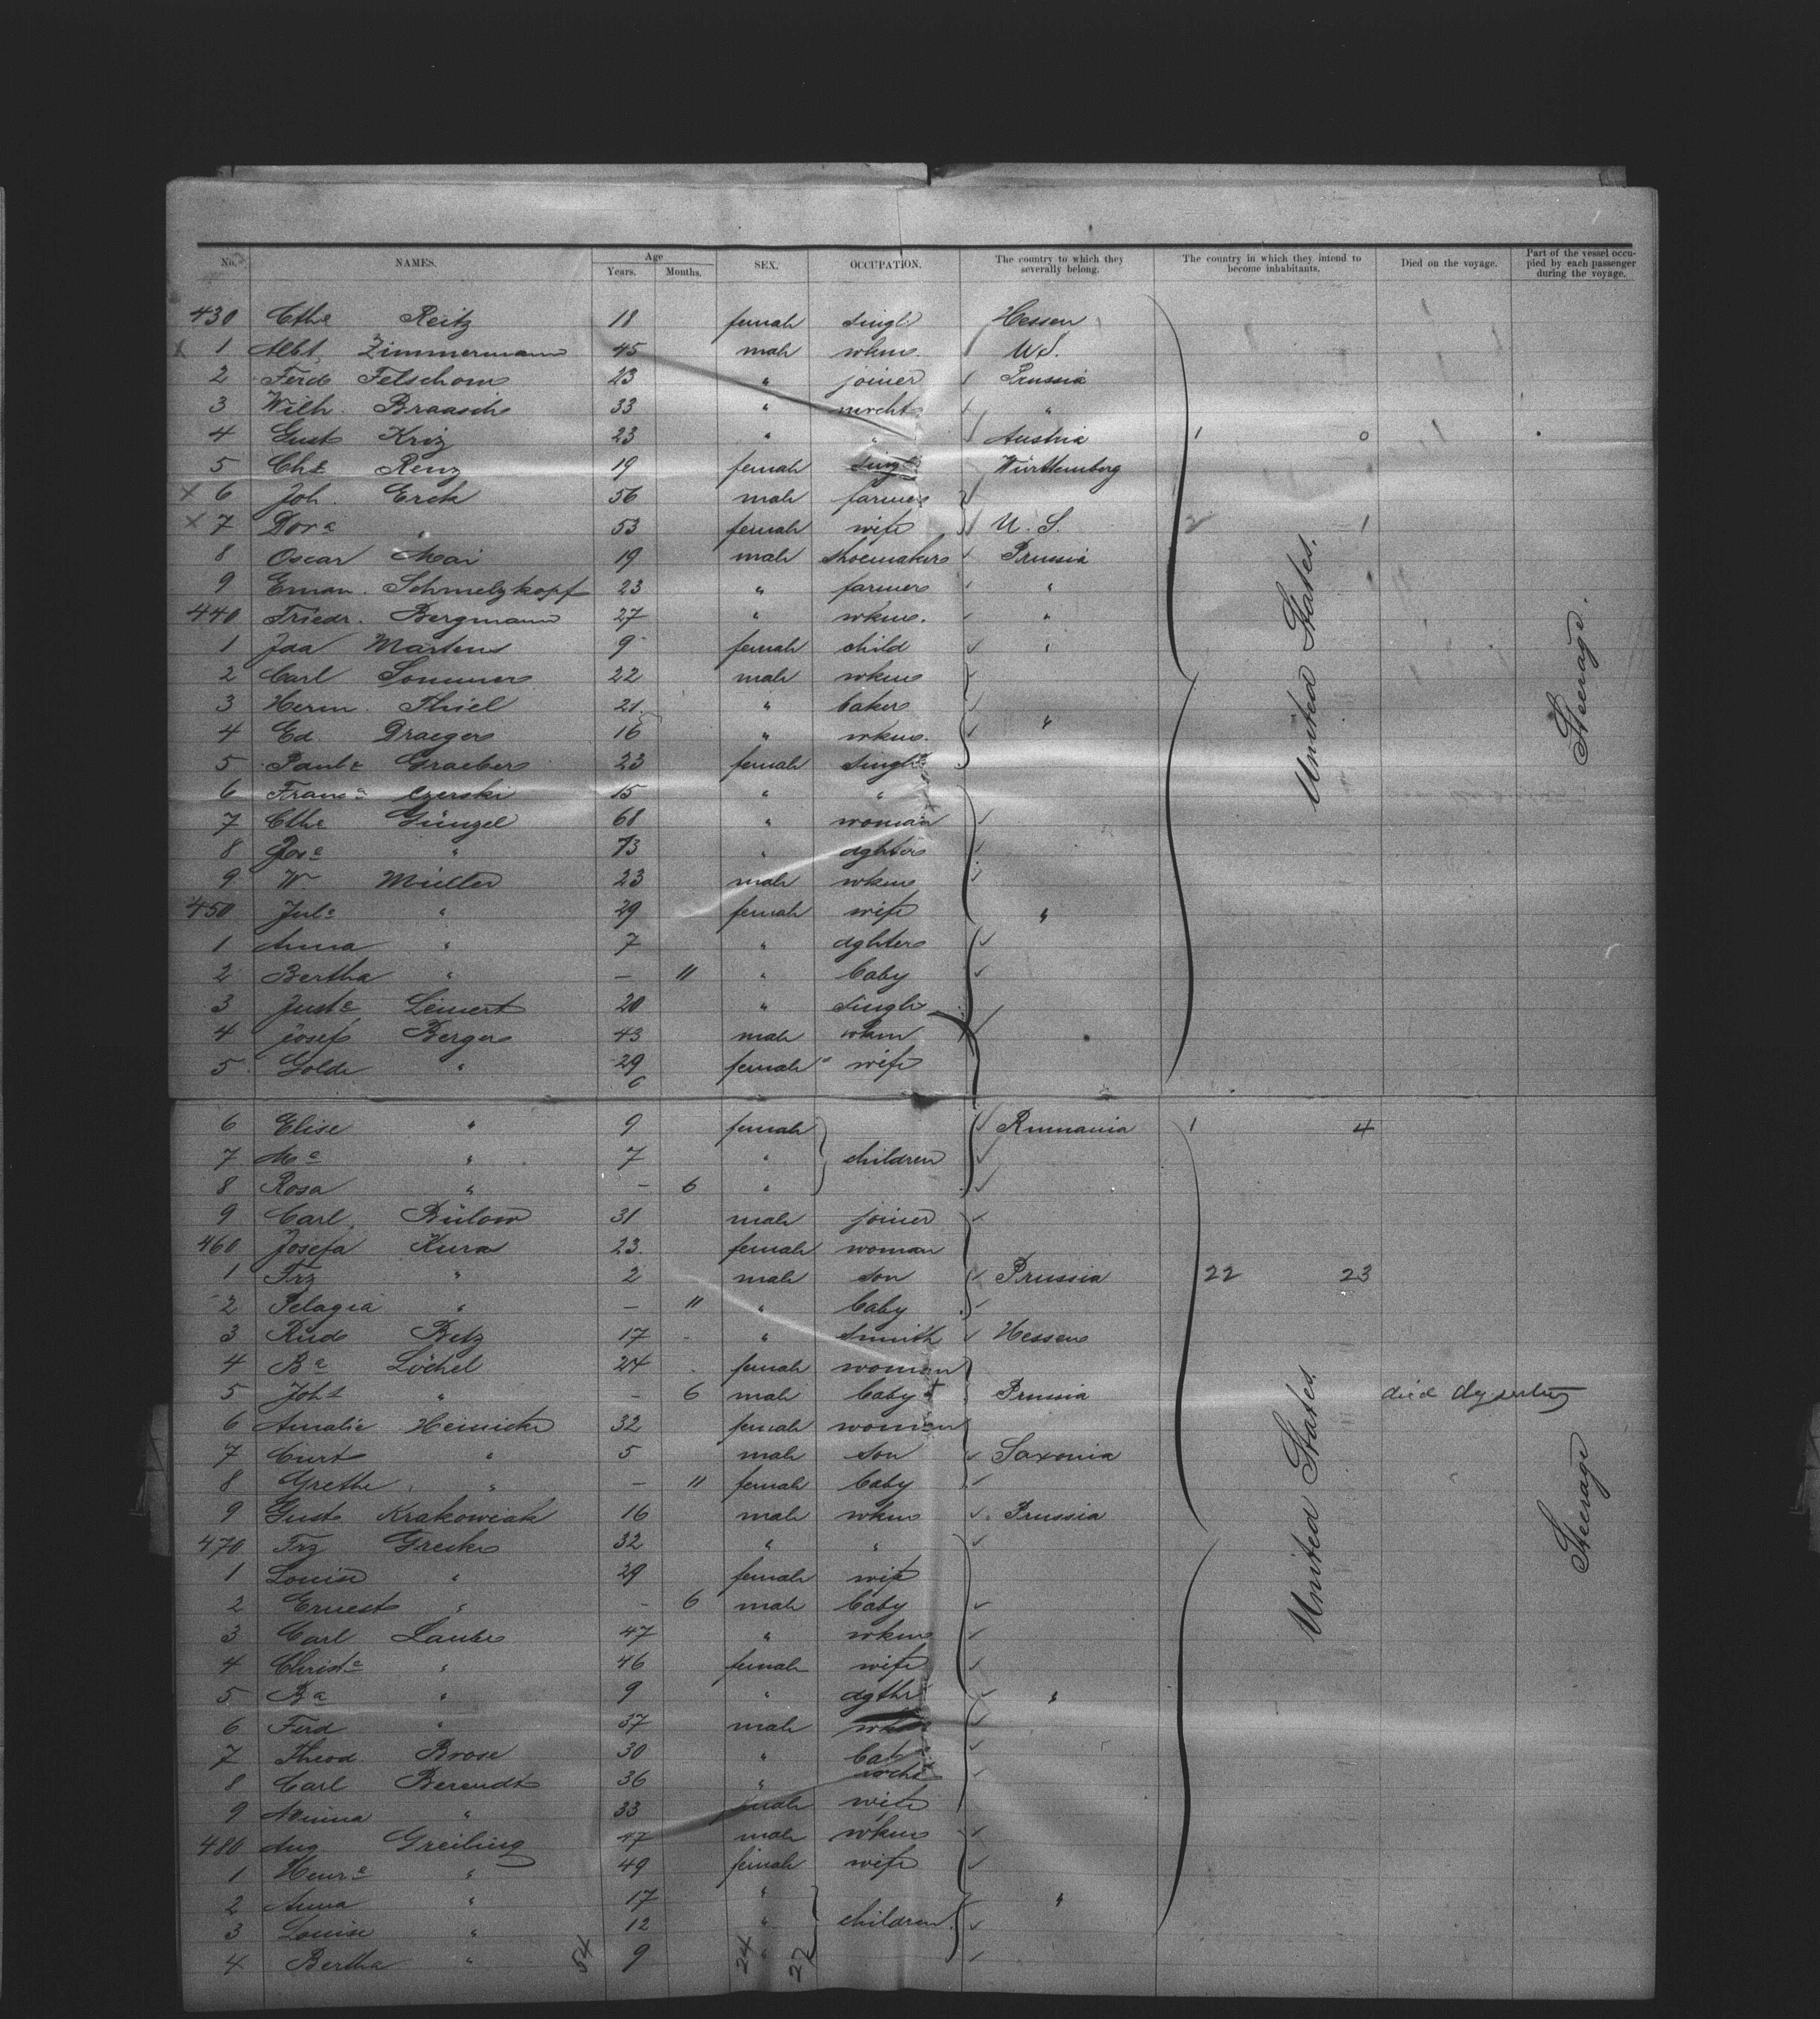 No. NAMES. Age Years. Months. SEX. OCCUPATION. The country to which they severally belong. The country in which they intend to become inhabitants. Died on the voyage. Part of the vessel occupied by each passenger during the voyage.
430 Cthe Reitz 18 female single Hessen
1 Albt. Zimmermann 45 male wkm. U.S.
2 Ferd Felschom 23 " joiner Prussia
3 Wilh. Braasch 33 " mrcht "
4 Gust Kriz 23 " " Austria 1 0
5 Chte Renz 19 female single Württemberg
6 Joh. Erck 56 male farmer
7 Dora " 53 female wife U.S. 2 1
8 Oscar Mai 19 male shoemaker Prussia
9 Eman. Schmelzkopf 23 " farmer "
440 Friedr. Bergmann 27 " wkm. "
1 Ida Martens 9 female child "
2 Carl Sommer 22 male wkm
3 Herm. Thiel 21 " baker
4 Ed. Draeger 16 " wkm. "
5 Paule Graeber 23 female single
6 Franca Czerski 15 " "
7 Cthe Günzel 68 " woman
8 " " dghter
9 W Müller 23 male wkm
450 Jule " 29 female wife "
1 Anna " 7 " dghter
2 Bertha " – 11 " baby
3 Juste Leinert 20 " single
4 Josef Berger 43 male wkm
5 Golde " 29 female wife
6 Elise " 9 female Rumania 1 4
7 Ma " 7 " children
8 Rosa " – 6 "
9 Carl Bülow 31 male joiner
460 Josefa Kura 23 female woman
1 Frz " 2 male son Prussia 22 23
2 Pelagia " – 11 " baby
3 Rud Betz 17 " smith Hessen
4 Ba Löchel 24 female woman
5 Joht " – 6 male baby † Prussia died dysentery
6 Amalie Heinicke 32 female woman
7 Curt " 5 male son Saxonia
8 Grethe " – 11 female baby
9 Gust. Krakowiak 16 male wkm Prussia
470 Frz Greske 32 " "
1 Louise " 29 female wife
2 Ernest " – 6 male baby
3 Carl Laube 47 " wkm
4 Christe " 46 female wife
5 Ba " 9 " dgthr "
6 Ferd " 37 male
7 Theod. Brose 30 "
8 Carl Berendt 36 "
9 Minna " 33 female wife
480 Aug Greiling 47 male wkm
1 Henre " 49 female wife
2 Anna " 17 " "
3 Louise " 12 " children
4 Bertha " 9 "
54 24 22
United States.
Steerage.
United States.
Steerage